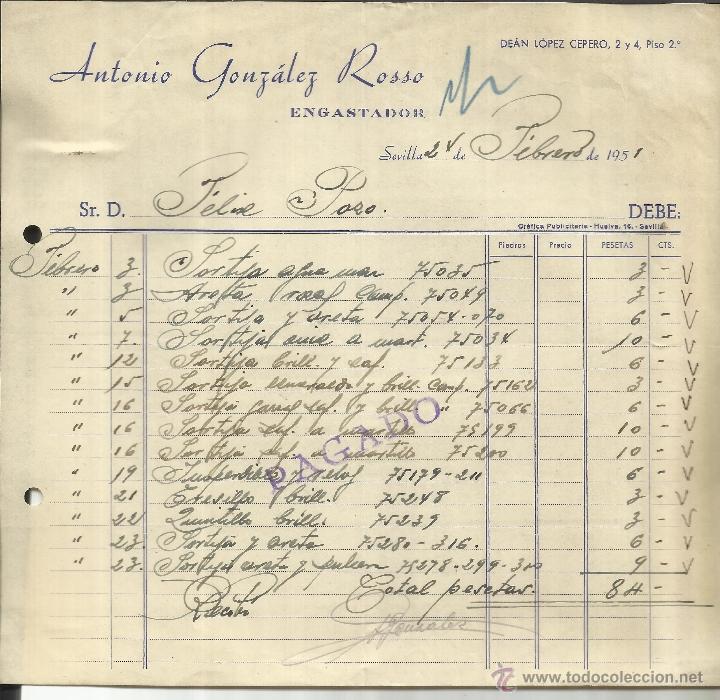 DEÁN LÓPEZ CEPERO, 2 y 4, Piso 2.º
Antonio González Rosso
ENGASTADOR
Sevilla 24 de Febrero de 1951
Sr. D. Félix Pozo. DEBE:
Gráfica Publicitaria - Huelva, 16. - Sevilla
Piedras Precio PESETAS CTS.
Febrero 3. Sortija agua mar 75035 3 -
" 3 Areta 75049 3 -
" 5 Sortija y areta 75054-070 6 -
" 7. Sortija a mart. 75034 10 -
" 12 Sortija brill. y zaf. 75133 6 -
" 15 Sortija esmeralda y brill. comp. 75162 3 -
" 16 Sortija y brill. " 75066 6 -
" 16 Sortija a martillo 75199 10 -
" 16 Sortija martillo 75200 10 -
" 19 y reloj 75179-211 6 -
" 21 Tresillo brill. 75248 3 -
" 22 Quintillo brill. 75239 3 -
" 23. Sortija y areta 75280-316. 6 -
" 23. Sortija areta y 75278-299-300 9 -
Total pesetas. 84 -
Recibí
A González
PAGADO
www.todocoleccion.net